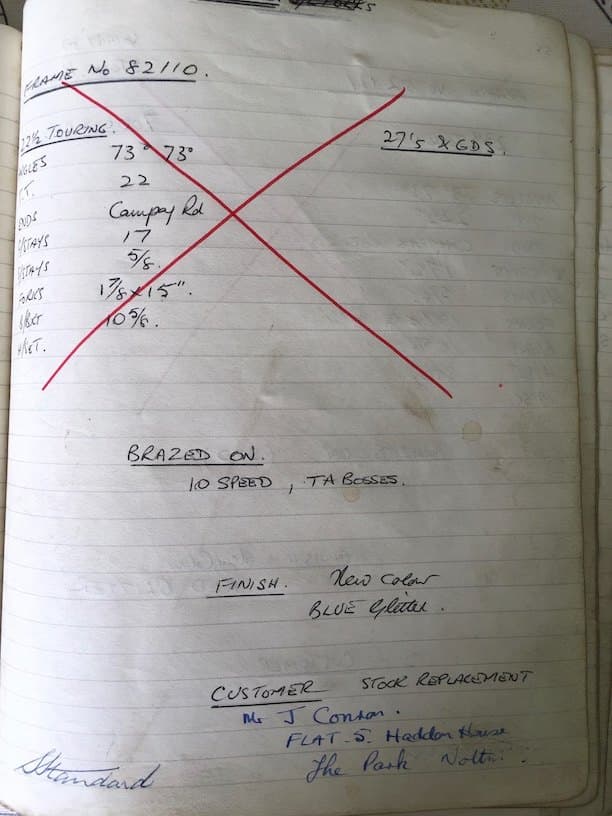 FRAME No 82110.
22½ TOURING.
27's & GDS.
ANGLES 73° 73°
T.T. 22
ENDS Campag Rd
C/STAYS 17
S/STAYS 5/8.
FORKS 1 7/8 x 15".
B/BKT 10 5/8.
H/SET.
BRAZED ON.
10 SPEED, TA BOSSES.
FINISH. New Colour
BLUE Glitter.
CUSTOMER STOCK REPLACEMENT
Mr J
FLAT 5. Haddon House
The Park Nottm.
Standard